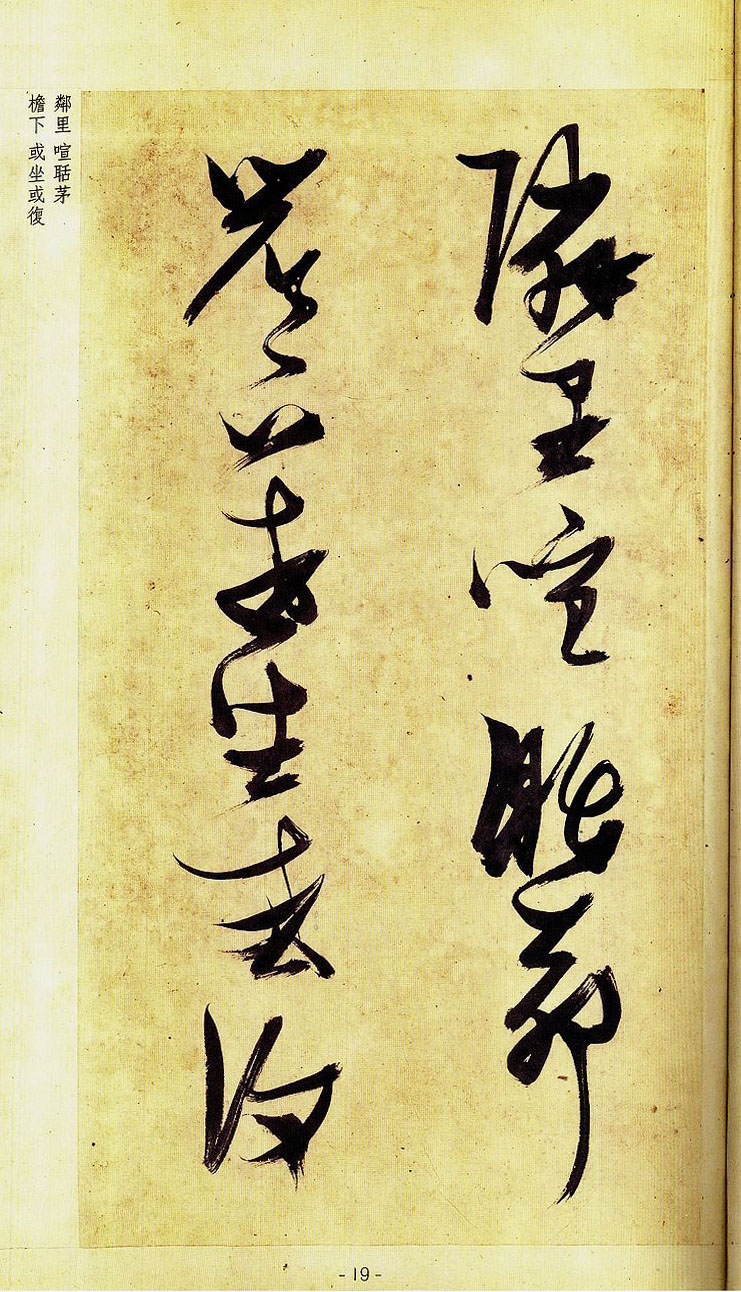 隣里喧聒茅
簷下或坐或復
鄰里 喧聒茅
檐下 或坐或復
- 19 -